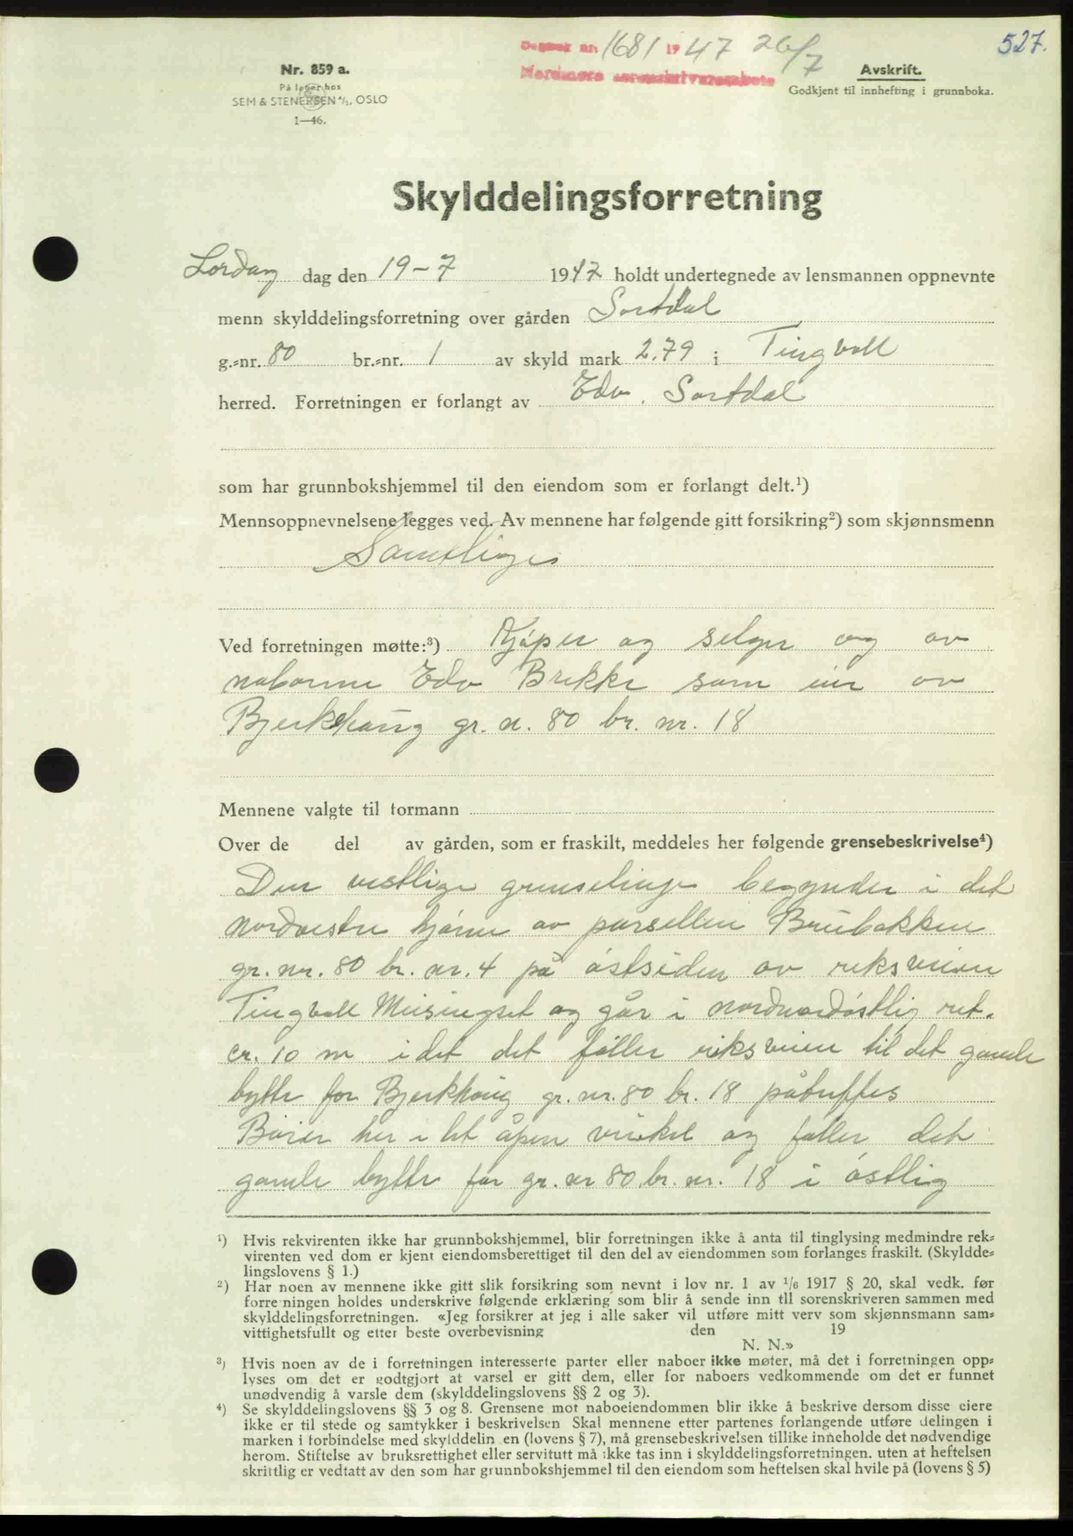 527.
Dagbok nr. 1681 1947 26/7
Nordmøre sorenskriverembete
Nr. 859 a.
På lager hos
SEM & STENERSEN A/S, OSLO
1—46.
Avskrift.
Godkjent til innhefting i grunnboka.
Skylddelingsforretning
Lørdag dag den 19-7 1947 holdt undertegnede av lensmannen oppnevnte
menn skylddelingsforretning over gården Sortdal
g.-nr. 80 br.-nr. 1 av skyld mark 2,79 i Tingvoll
herred. Forretningen er forlangt av Edv. Sortdal
som har grunnbokshjemmel til den eiendom som er forlangt delt.¹)
Mennsoppnevnelsene legges ved. Av mennene har følgende gitt forsikring²) som skjønnsmenn
Samtlige
Ved forretningen møtte:³) Kjøper og selger og av
naboerne Edv Brekke som eier av
Bjerkhaug gr. n. 80 br. nr. 18
Mennene valgte til formann
Over de del av gården, som er fraskilt, meddeles her følgende grensebeskrivelse⁴)
Den vestlige grenselinje begynder i det
nordvestre hjørne av parsellen Brubakken
gr. nr. 80 br. nr. 4 på østsiden av riksveien
Tingvoll Meisingset og går i nordnordøstlig ret.
cr. 10 m idet det føller riksveien til det gamle
bytte for Bjerkhaug gr. nr. 80 br. 18 påtreffes
Bøier her i let åpen vinkel og føller det
gamle bytte for gr. nr 80 br. nr. 18 i østlig
¹) Hvis rekvirenten ikke har grunnbokshjemmel, blir forretningen ikke å anta til tinglysing medmindre rek-
virenten ved dom er kjent eiendomsberettiget til den del av eiendommen som forlanges fraskilt. (Skyldde-
lingslovens § 1.)
²) Har noen av mennene ikke gitt slik forsikring som nevnt i lov nr. 1 av 1/6 1917 § 20, skal vedk. før
forretningen holdes underskrive følgende erklæring som blir å sende inn til sorenskriveren sammen med
skylddelingsforretningen. «Jeg forsikrer at jeg i alle saker vil utføre mitt verv som skjønnsmann sam-
vittighetsfullt og etter beste overbevisning den 19
N. N.»
³) Hvis noen av de i forretningen interesserte parter eller naboer ikke møter, må det i forretningen opp-
lyses om det er godtgjort at varsel er gitt dem, eller for naboers vedkommende om det er funnet
unødvendig å varsle dem (skylddelingslovens §§ 2 og 3).
⁴) Se skylddelingslovens §§ 3 og 8. Grensene mot naboeiendommen blir ikke å beskrive dersom disse eiere
ikke er til stede og samtykker i beskrivelsen Skal mennene etter partenes forlangende utføre delingen i
marken i forbindelse med skylddelin en (lovens § 7), må grensebeskrivelsen tillike inneholde det nødvendige
herom. Stiftelse av bruksrettighet eller servitutt må ikke tas inn i skylddelingsforretningen, uten at heftelsen
skriftlig er vedtatt av den som har grunnbokshjemmel til den eiendom som heftelsen skal hvile på (lovens § 5)